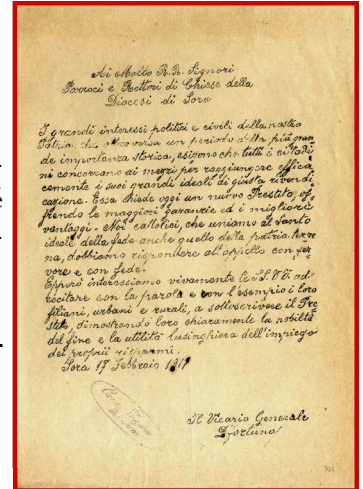 Ai Molto R.R. Signori
Parroci e Rettori di Chiese della
Diocesi di Sora
I grandi interessi politici e civili della nostra
Patria che attraversa un periodo della più gran
de importanza storica, esigono che tutti i cittadi
ni concorrano ai mezzi per raggiungere effica
cemente i suoi grandi ideali di giusta rivendi
cazione. Essa chiede oggi un nuovo Prestito, of
frendo le maggiori garanzie ed i migliori
vantaggi. Noi cattolici, che uniamo al Santo
ideale della fede anche quello della patria terre
na, dobbiamo rispondere all'appello con fer
vore e con fede.
Epperò interessiamo vivamente le S.S. V.V. ad
eccitare con la parola e con l'esempio i loro
filiani, urbani e rurali, a sottoscrivere il Pre
stito, dimostrando loro chiaramente la nobiltà
del fine e la utilità lusinghiera dell'impiego
dei proprii risparmi.
Sora 17 Febbraio 1917
Il Vicario Generale